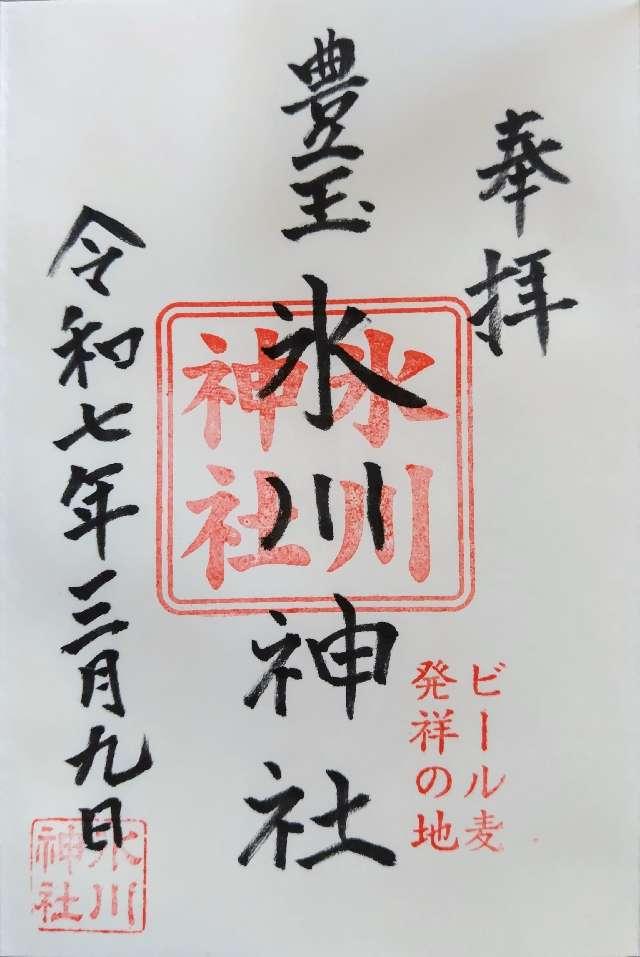 奉拝
豊玉氷川神社
氷川
神社
ビール麦
発祥の地
令和七年三月九日
氷川
神社